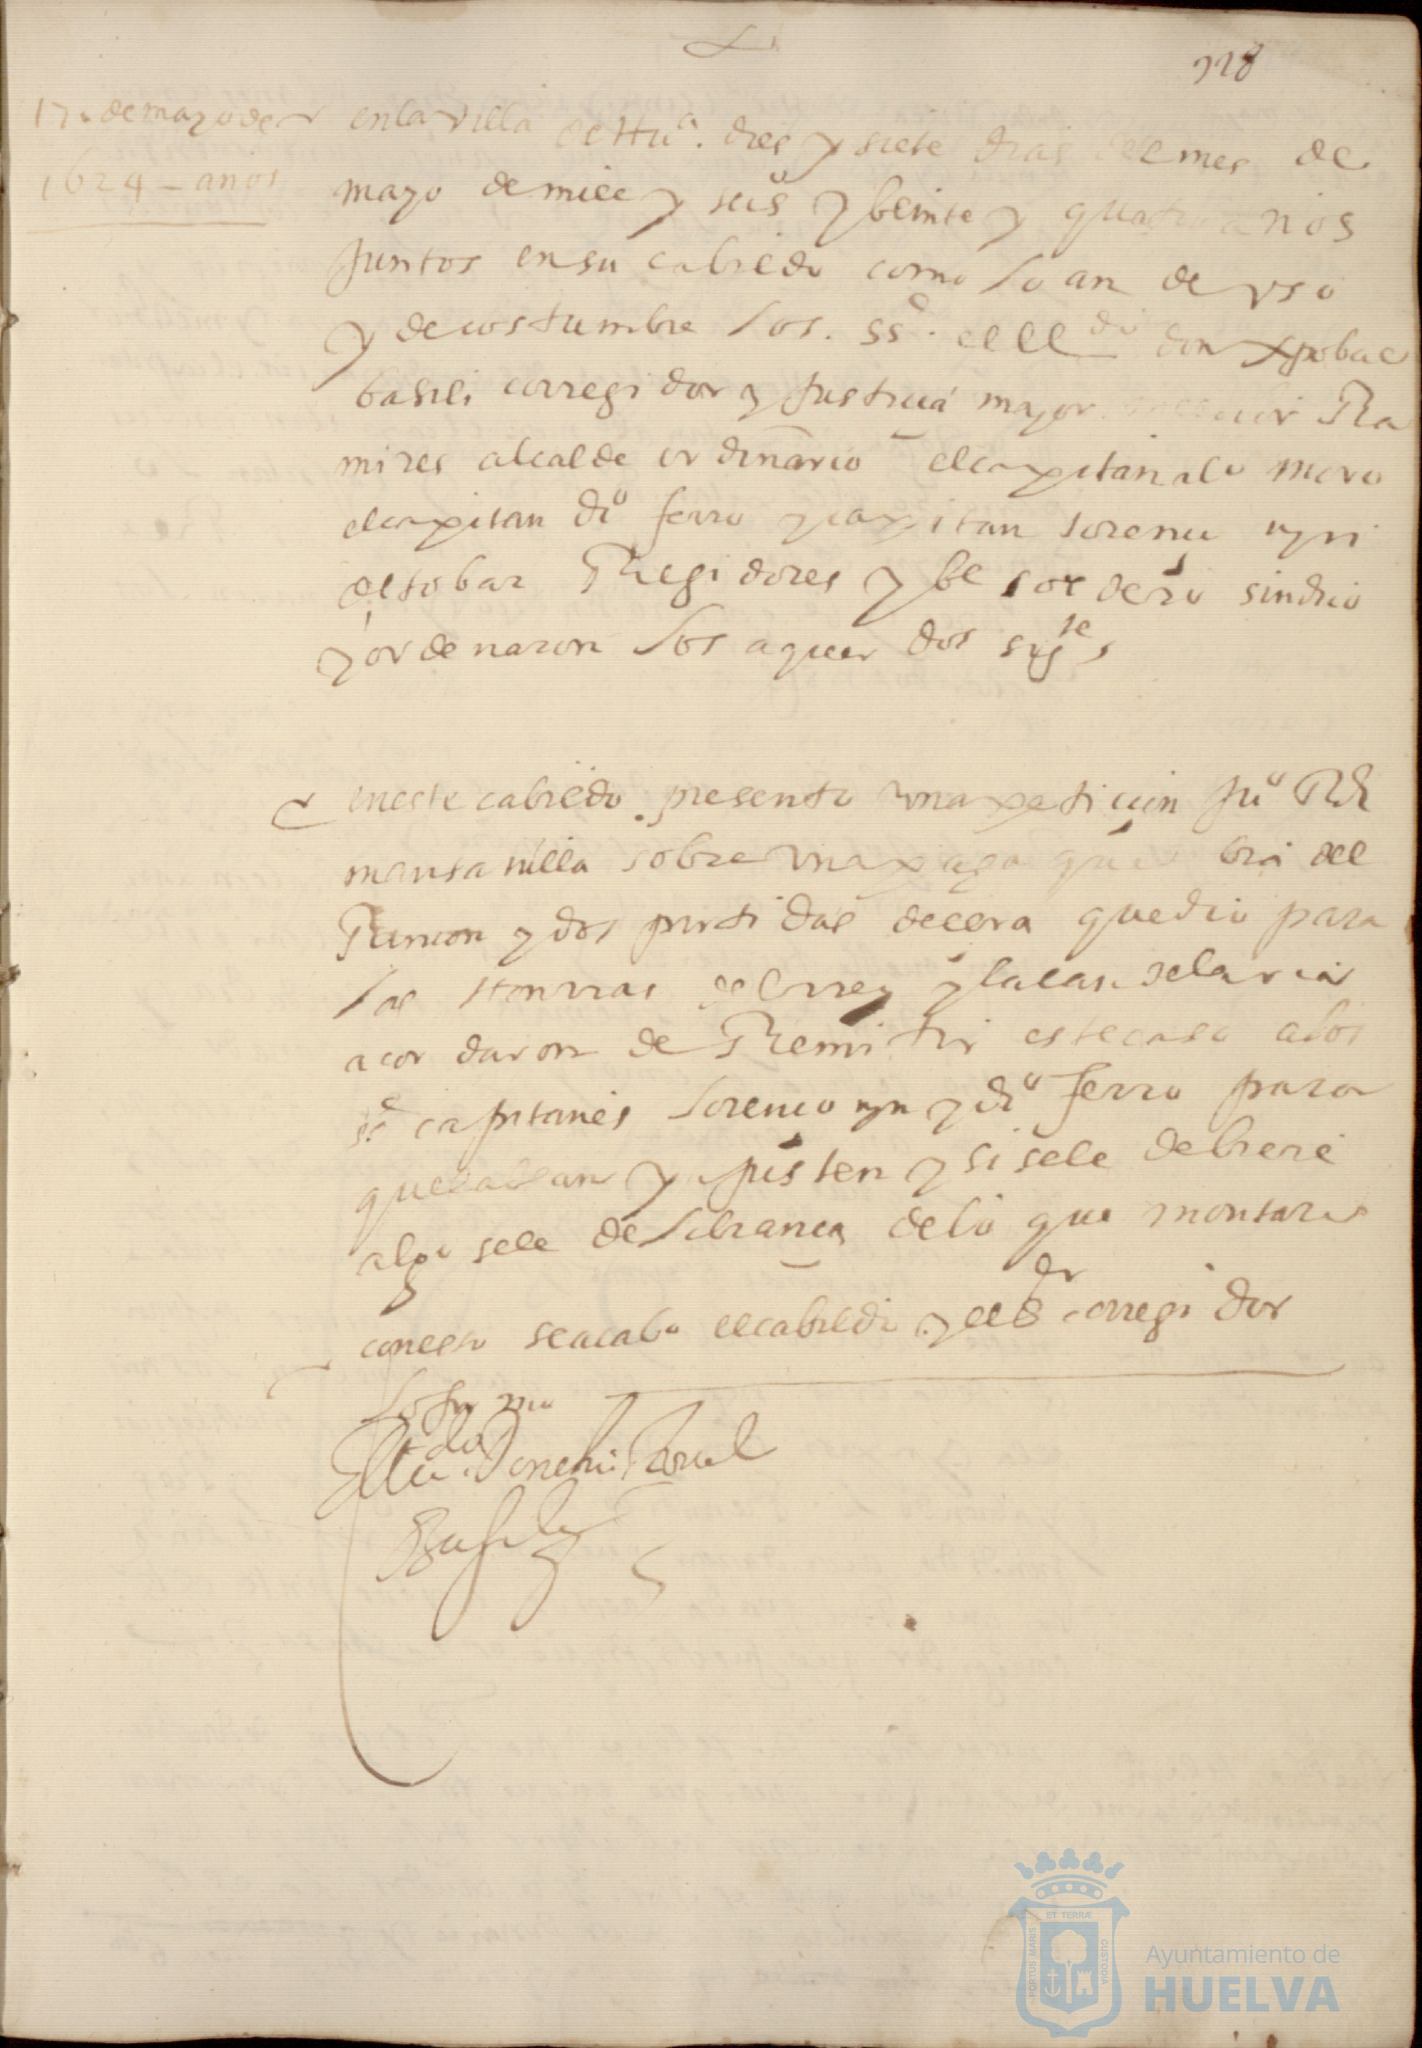 118
17. de mayo de
1624 - años
en la villa de Hu.ª dies y siete dias del mes de
mayo de mill y seisº y beinte y quatro años
Juntos en su cabildo como lo an de uso
y de costumbre los. SSᵉ. el lldº don xpobal
basili corregidor y Justicia mayor Ra
mires alcalde ordinario el capitan alº moro
el capitan diº ferro y capitan lorenço
de tobar Regidores y bᵉ sordero sindico
y ordenaron los aquerdos sigᵗᵉs
en este cabildo presento una peticion Juº Rᴿ
mansanilla sobre una paga bra del
Rincon y dos partidas de cera que dio para
las Honrras del rrey y la canselaria
acordaron de Remitir este caso a los
ssᵉ capitanes lorenço y diº ferro para
que lo bean y ajusten y si se le debiere
algo se le de libranca de lo que montare
con esto se acabo el cabildo y el Sᵒʳ corregidor
lo firmo
El lic.do Don chri.sto val
Basili
PORTUS MARIS
ET TERRÆ
CUSTODIA
Ayuntamiento de
HUELVA